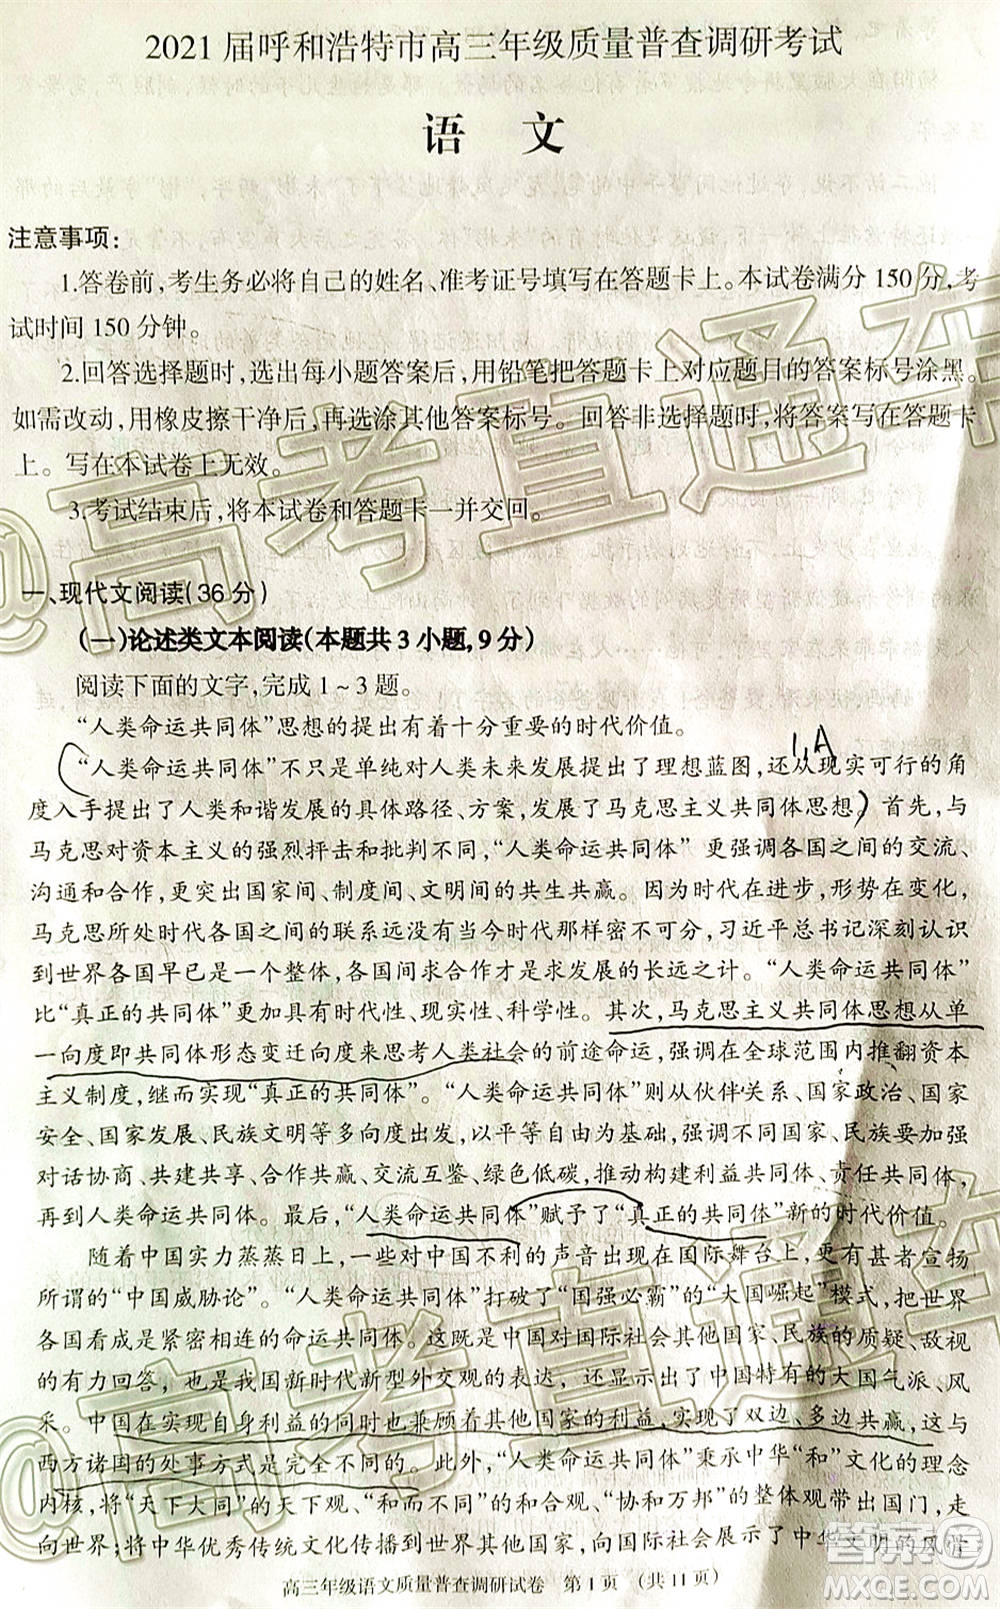 2021届呼和浩特市高三年级质量普查调研考试
语 文
注意事项:
1.答卷前,考生务必将自己的姓名、准考证号填写在答题卡上。本试卷满分150分,考
试时间150分钟。
2.回答选择题时,选出每小题答案后,用铅笔把答题卡上对应题目的答案标号涂黑。
如需改动,用橡皮擦干净后,再选涂其他答案标号。回答非选择题时,将答案写在答题卡
上。写在本试卷上无效。
3.考试结束后,将本试卷和答题卡一并交回。
一、现代文阅读(36分)
(一)论述类文本阅读(本题共3小题,9分)
阅读下面的文字,完成1~3题。
“人类命运共同体”思想的提出有着十分重要的时代价值。
1,A
“人类命运共同体”不只是单纯对人类未来发展提出了理想蓝图,还从现实可行的角
度入手提出了人类和谐发展的具体路径、方案,发展了马克思主义共同体思想。首先,与
马克思对资本主义的强烈抨击和批判不同,“人类命运共同体”更强调各国之间的交流、
沟通和合作,更突出国家间、制度间、文明间的共生共赢。因为时代在进步,形势在变化,
马克思所处时代各国之间的联系远没有当今时代那样密不可分,习近平总书记深刻认识
到世界各国早已是一个整体,各国间求合作才是求发展的长远之计。“人类命运共同体”
比“真正的共同体”更具有时代性、现实性、科学性。其次,马克思主义共同体思想从单
一向度即共同体形态变迁向度来思考人类社会的前途命运,强调在全球范围内推翻资本
主义制度,继而实现“真正的共同体”。“人类命运共同体”则从伙伴关系、国家政治、国家
安全、国家发展、民族文明等多向度出发,以平等自由为基础,强调不同国家、民族要加强
对话协商、共建共享、合作共赢、交流互鉴、绿色低碳,推动构建利益共同体、责任共同体,
再到人类命运共同体。最后,“人类命运共同体”赋予了“真正的共同体”新的时代价值。
随着中国实力蒸蒸日上,一些对中国不利的声音出现在国际舞台上,更有甚者宣扬
所谓的“中国威胁论”。“人类命运共同体”打破了“国强必霸”的“大国崛起”模式,把世界
各国看成是紧密相连的命运共同体。这既是中国对国际社会其他国家、民族的质疑、敌视
的有力回答,也是我国新时代新型外交观的表达,还向世界展示了中国特有的大国气派、风
采。中国在实现自身利益的同时也兼顾着其他国家的利益,实现了双边、多边共赢,这与
西方诸国的处事方式是完全不同的。此外,“人类命运共同体”秉承中华“和”文化的理念
内核,将“天下大同”的天下观、“和而不同”的和合观、“协和万邦”的整体观带出国门,走
向世界;将中华优秀传统文化传播到世界其他国家,向国际社会展示了中华文明的风情
高三年级语文质量普查调研试卷 第1页 (共11页)
@高考直通车
@高考直通车
答案圈
MXQE.COM